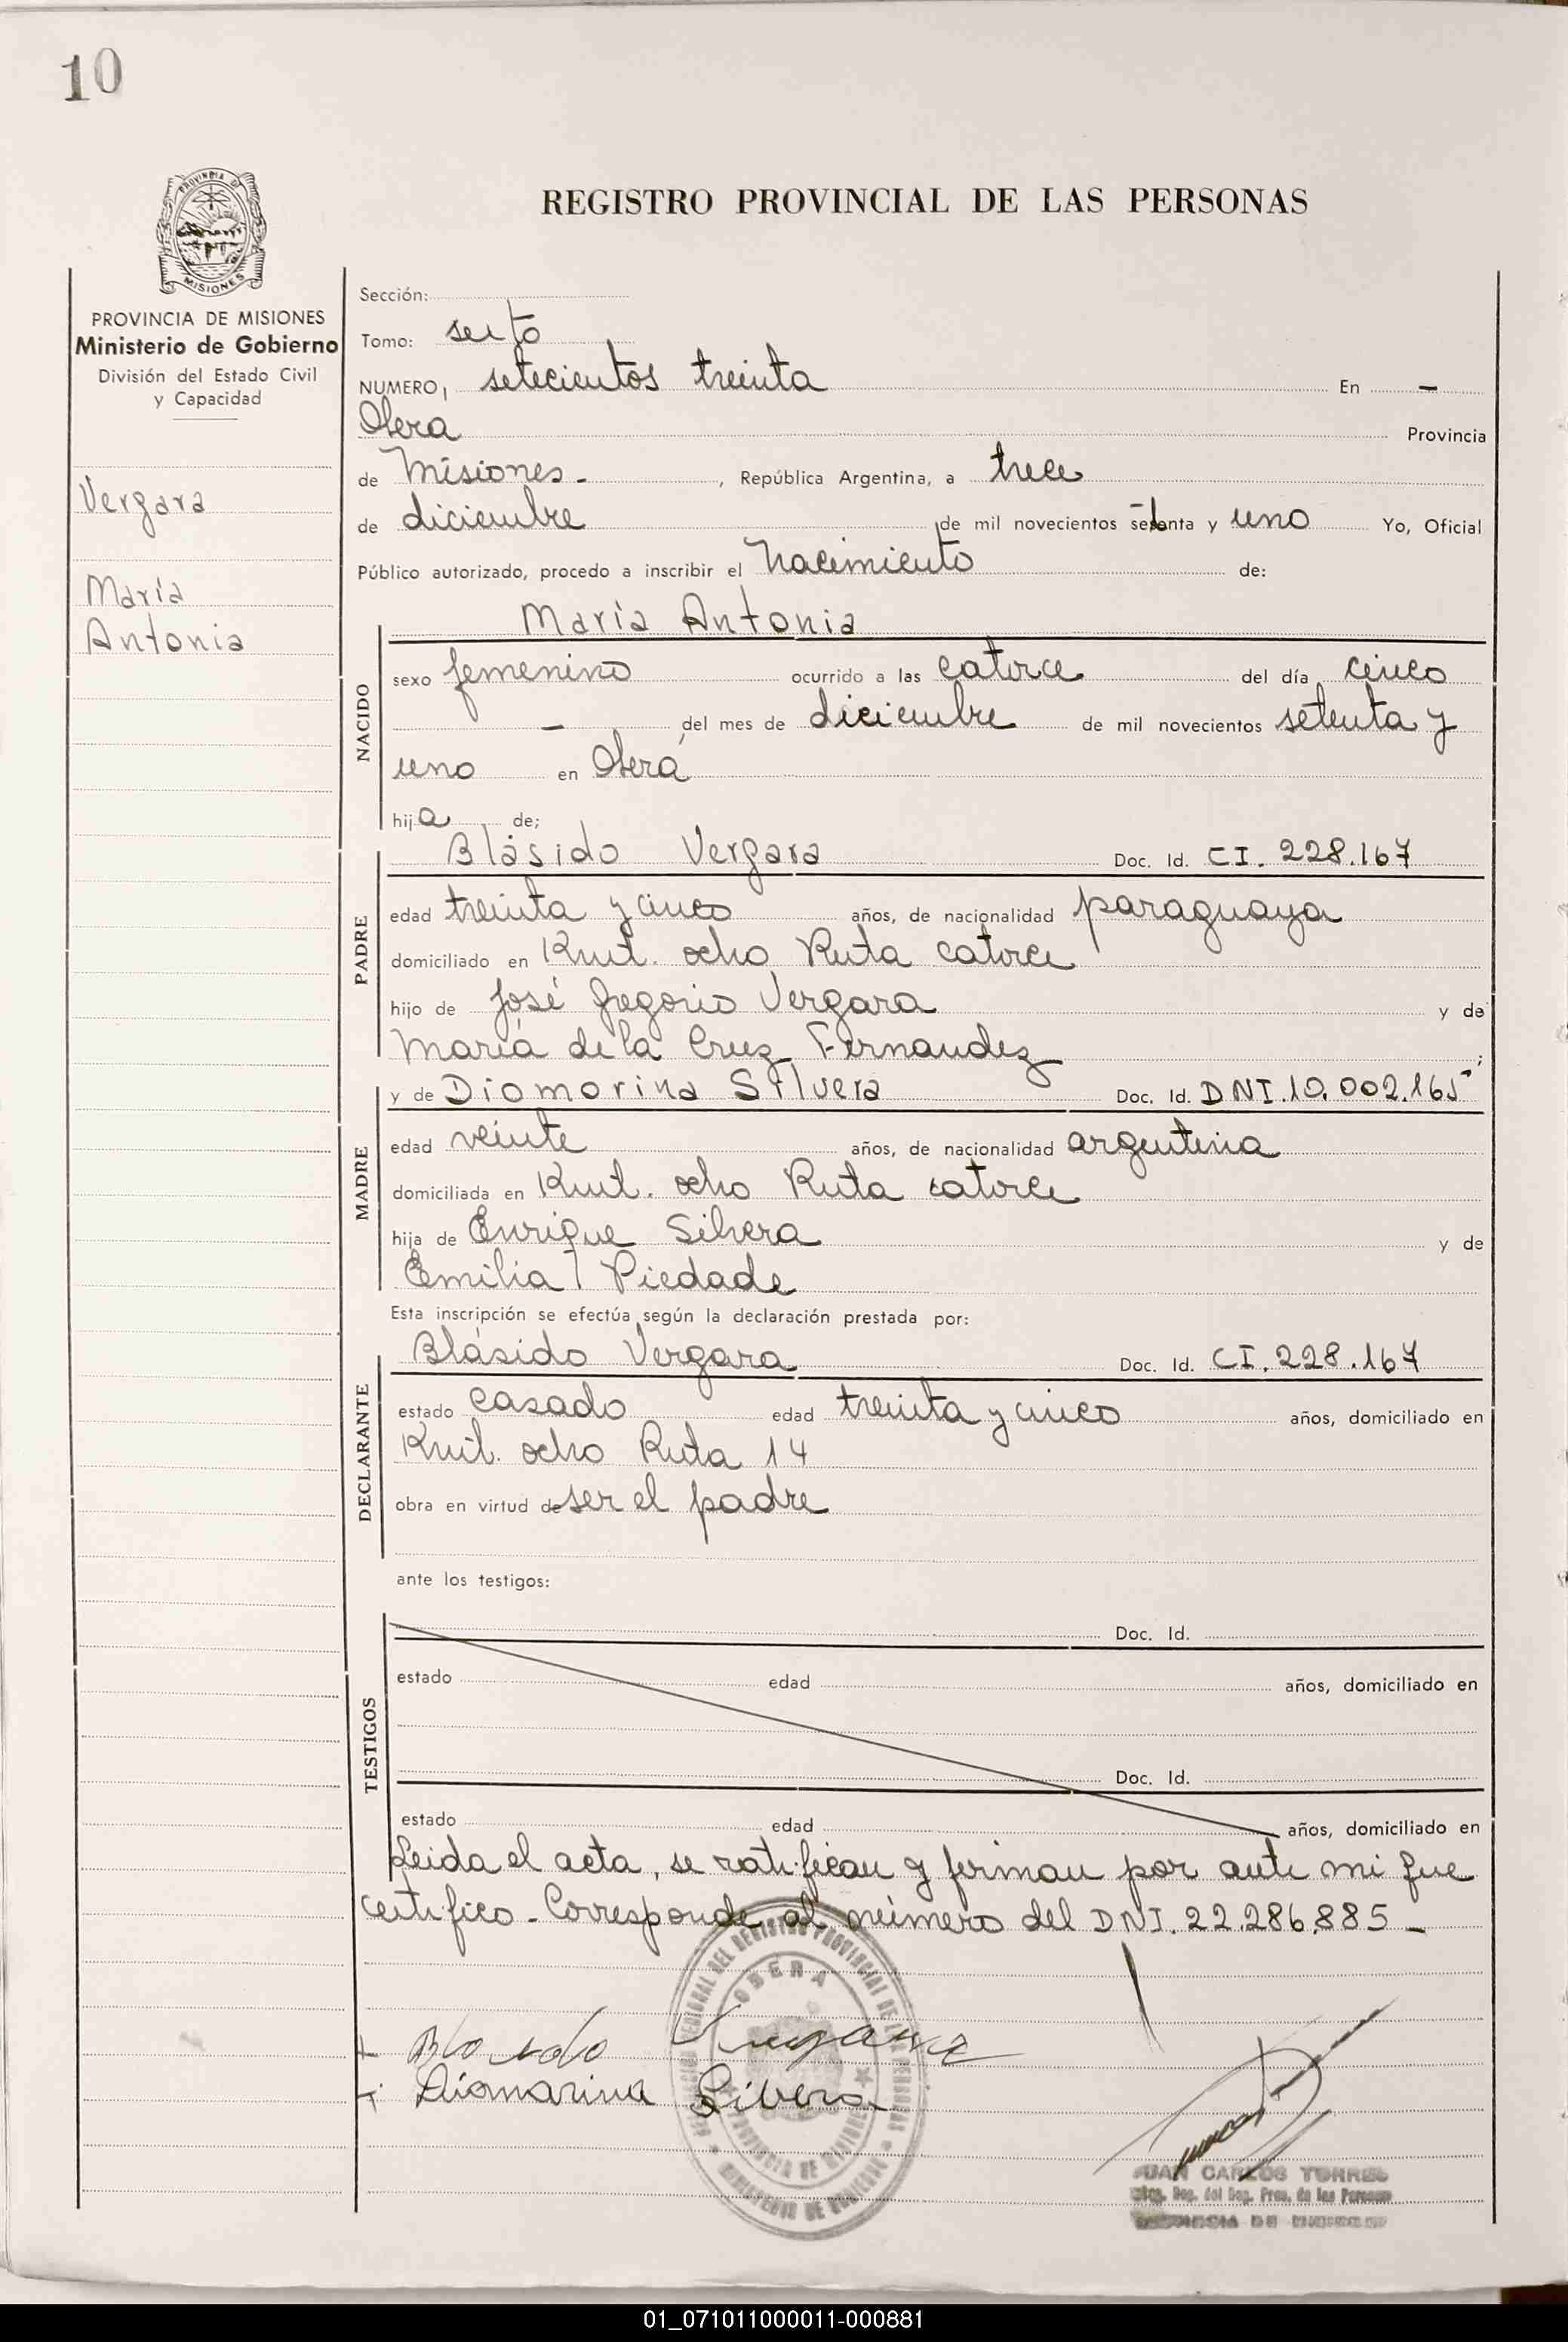 10
PROVINCIA DE
MISIONES
REGISTRO PROVINCIAL DE LAS PERSONAS
PROVINCIA DE MISIONES
Ministerio de Gobierno
División del Estado Civil
y Capacidad
Vergara
María
Antonia
Sección:
Tomo: sexto
NUMERO, setecientos treinta En -
Oberá Provincia
de Misiones -, República Argentina, a trece
de diciembre de mil novecientos setenta y uno Yo, Oficial
Público autorizado, procedo a inscribir el Nacimiento de:
María Antonia
NACIDO
sexo femenino ocurrido a las catorce del día cinco
- del mes de diciembre de mil novecientos setenta y
uno en Oberá
hija de;
PADRE
Blásido Vergara Doc. Id. CI. 228.167
edad treinta y cinco años, de nacionalidad paraguaya
domiciliado en Kmt. ocho Ruta catorce
hijo de José Gregorio Vergara y de
María de la Cruz Fernandez ;
MADRE
y de Diomorina Silvera Doc. Id. DNI.10.002.165
edad veinte años, de nacionalidad argentina
domiciliada en Kmt. ocho Ruta catorce
hija de Enrique Silvera y de
Emilia Piedade
Esta inscripción se efectúa según la declaración prestada por:
DECLARANTE
Blásido Vergara Doc. Id. CI. 228.167
estado casado edad treinta y cinco años, domiciliado en
Kmt. ocho Ruta 14
obra en virtud de ser el padre
ante los testigos:
TESTIGOS
Doc. Id.
estado edad años, domiciliado en
Doc. Id.
estado edad años, domiciliado en
Leida el acta, se ratifican y firman por ante mi que
certifico - Corresponde al número del DNI. 22.286.885 -
OBERA
PROVINCIA DE MISIONES
MINISTERIO DE GOBIERNO
Diomarina Silvera
JUAN CARLOS TORRES
01_071011000011-000881